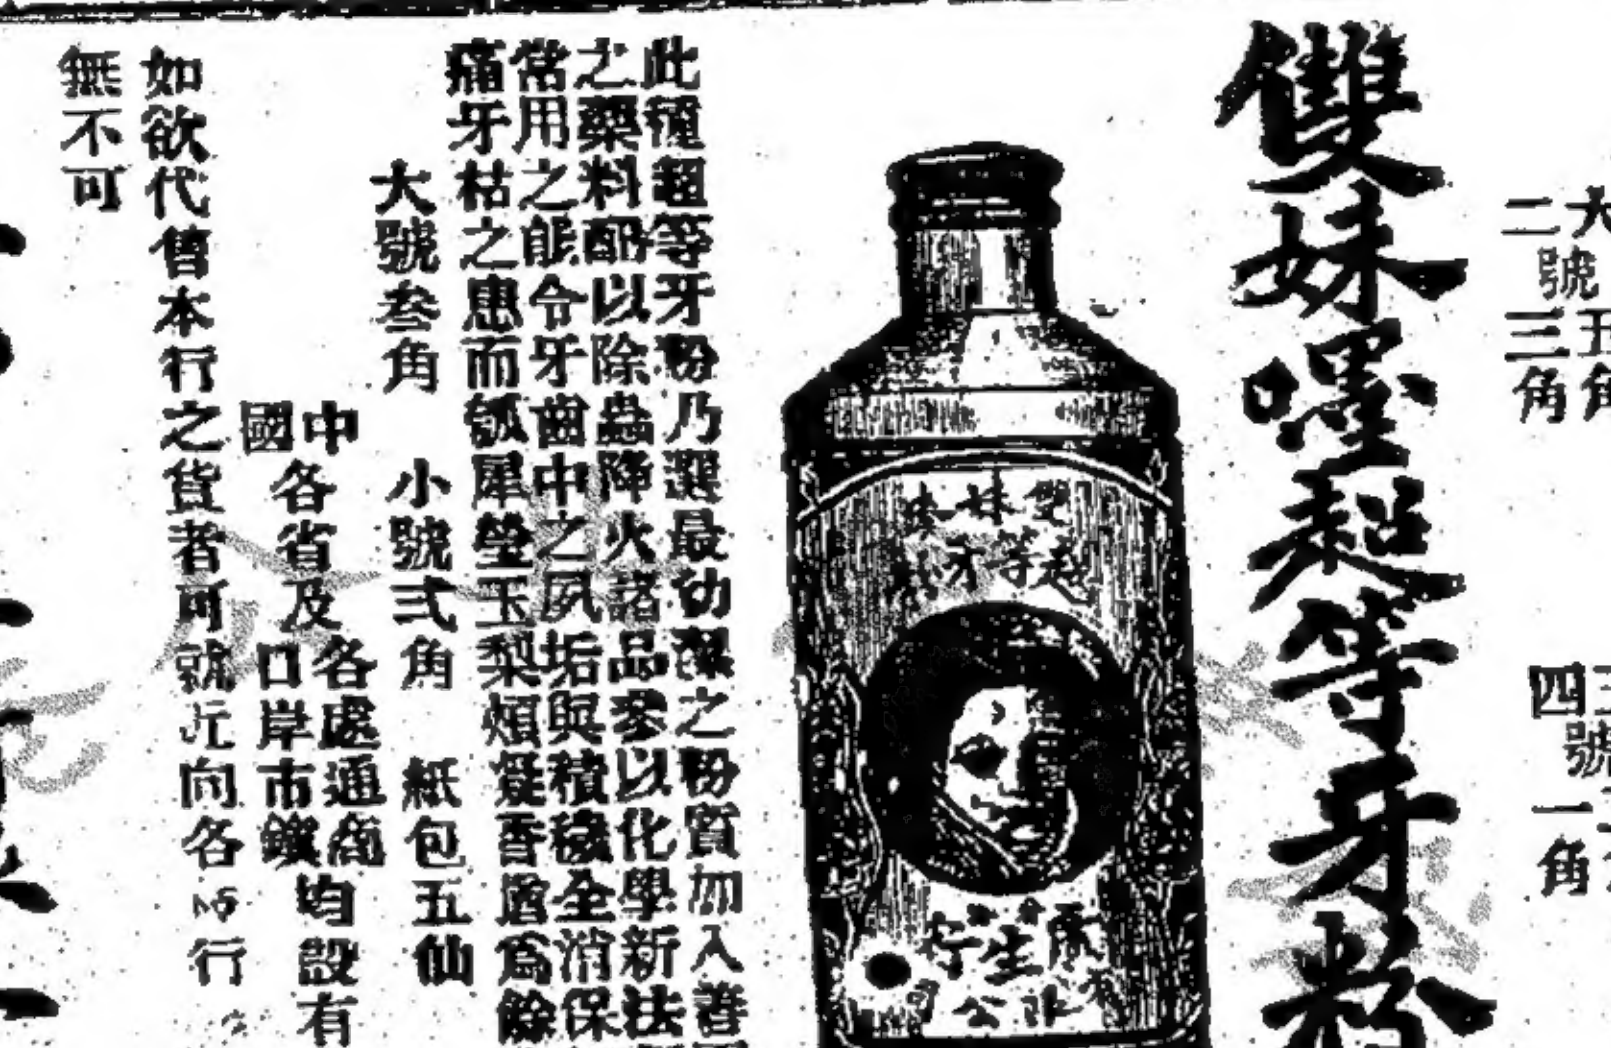 大 五角
二號 三角
四號 一角
雙妹嚜超等牙粉
雙妹
超等牙
廣生行
公司
此種超等牙粉乃選最幼潔之粉質加入善
之藥料配以除蟲降火諸品參以化學新法
常用之能令牙齒中之夙垢與積穢全消保
痛牙枯之患而瓠犀瑩玉梨頰凝香猶為餘
大號叁角 小號弍角 紙包五仙
中國各省及各處通商口岸市鎮均設有
如欲代售本行之貨者可就近向各 行
無不可